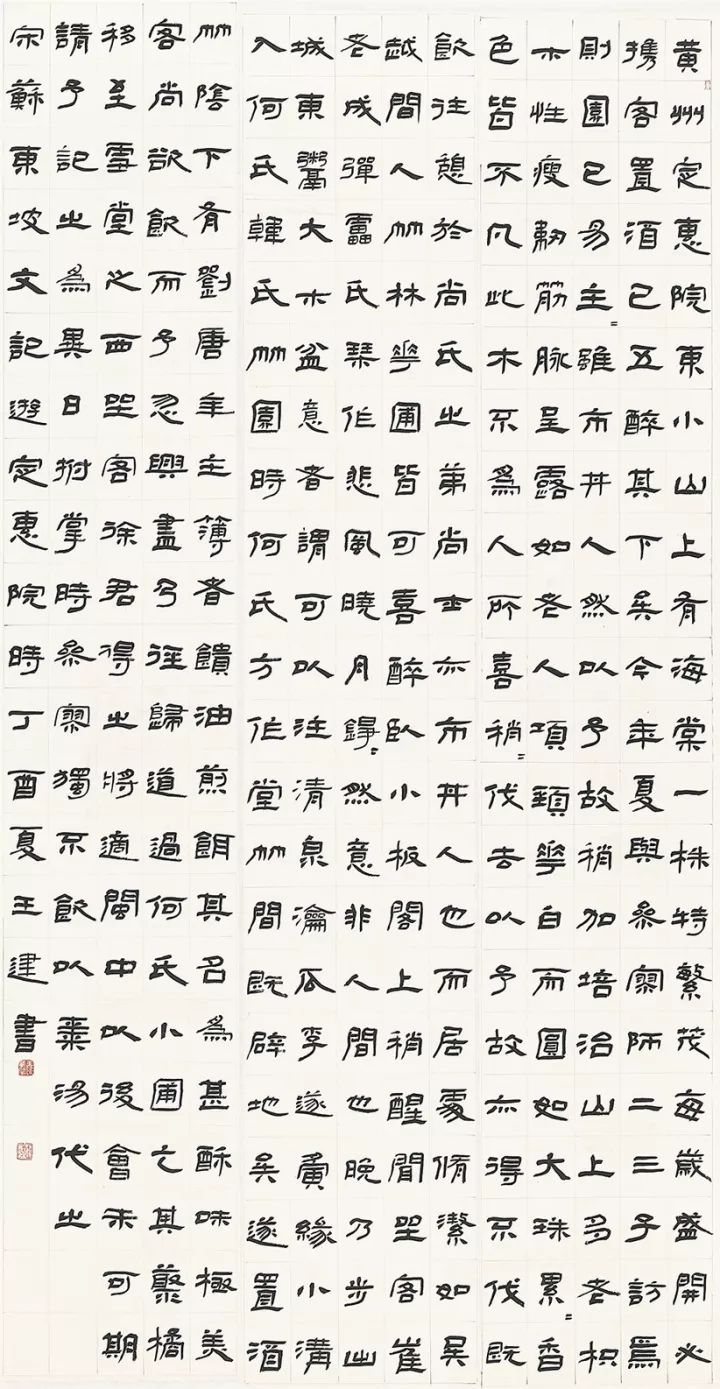 黃州定惠院東小山上有海棠一株特繁茂每歲盛開必
携客置酒已五醉其下矣今年夏與參寥師二三子訪焉
則園已易主〻雖市井人然以予故稍加培治山上多老枳
木性瘦韌筋脈呈露如老人項頸花白而圓如大珠累〻香
色皆不凡此木不為人所喜稍〻伐去以予故亦得不伐既
飲往憩於尚氏之第尚士亦市井人也而居處脩潔如吳
越間人竹林花圃皆可喜醉臥小板閣上稍醒聞坐客崔
老成彈雷氏琴作悲風曉月錚〻然意非人間也晚乃步出
城東鬻大木盆意者謂可以注清泉瀹瓜李遂夤緣小溝
入何氏韓氏竹園時何氏方作堂竹間既辟地矣遂置酒
竹陰下有劉唐年主簿者饋油煎餌其名為甚酥味極美
客尚欲飲而予忽興盡乃徑歸道過何氏小圃乞其藂橘
移至雪堂之西坐客徐君得之將適閩中以後會未可期
請予記之為異日拊掌時參寥獨不飲以棗湯代之
宋蘇東坡文記遊定惠院時丁酉夏王建書